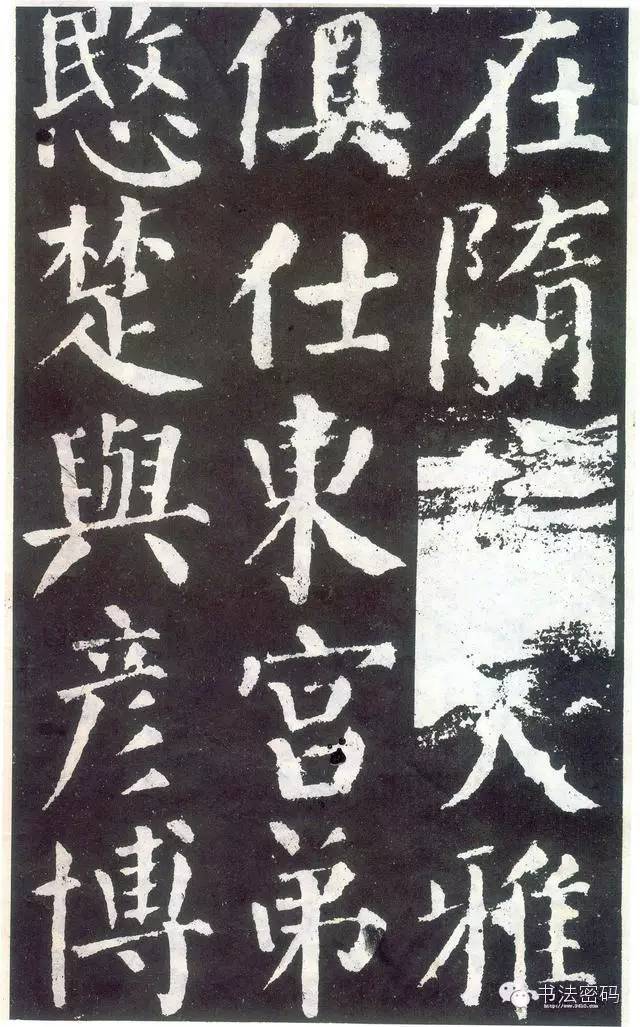 在隋大雅
俱仕東宮弟
愍楚與彥博
书法密码
http://www.9610.com